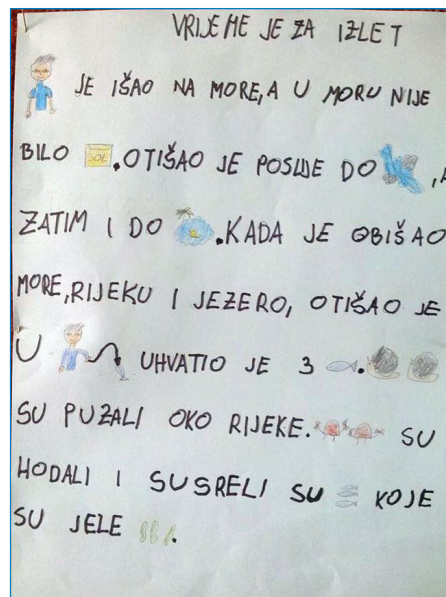 VRIJEME JE ZA IZLET
JE IŠAO NA MORE, A U MORU NIJE
BILO SOL. OTIŠAO JE POSLIJE DO ,
ZATIM I DO . KADA JE OBIŠAO
MORE, RIJEKU I JEZERO, OTIŠAO JE
U UHVATIO JE 3 .
SU PUZALI OKO RIJEKE. SU
HODALI I SUSRELI SU KOJE
SU JELE .